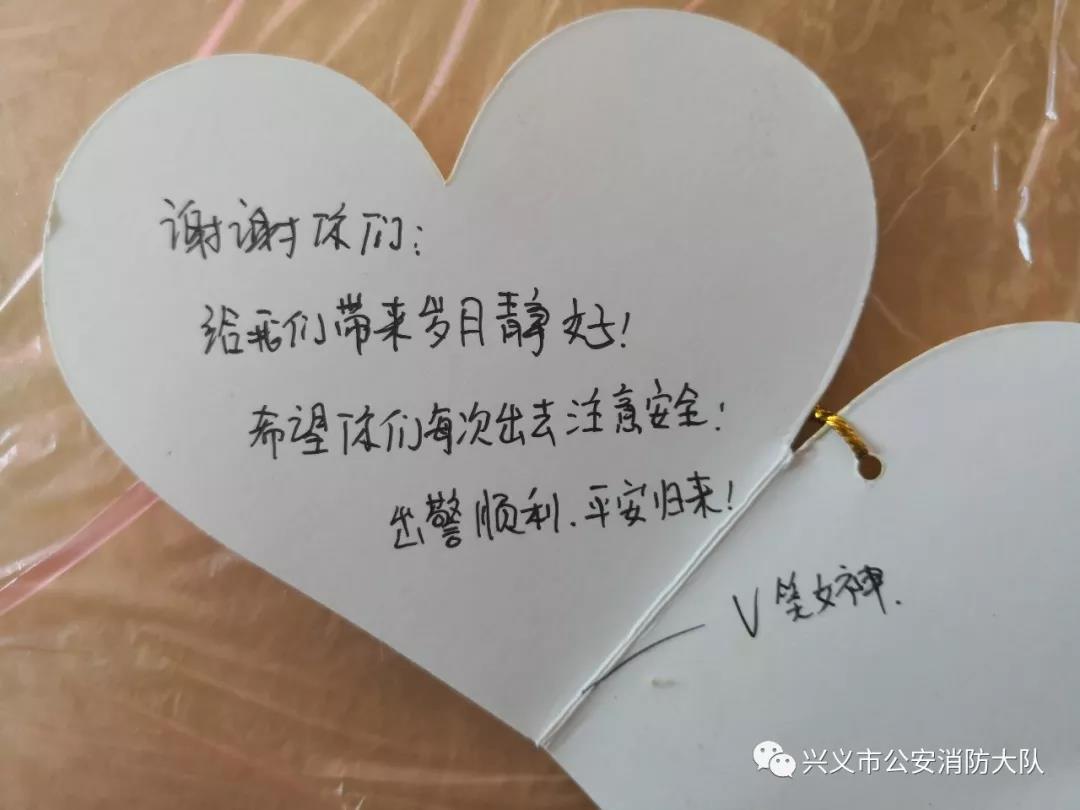 谢谢你们:
给我们带来岁月静好!
希望你们每次出去注意安全!
出警顺利.平安归来!
——V笑女神.
兴义市公安消防大队